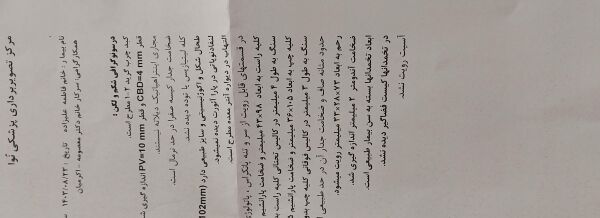 مرکز تصویربرداری پزشکی نوا
نام بیمار: خانم فاطمه علیزاده تاریخ: ۱۴۰۳/۰۸/۲۳
همکار گرامی: سرکار خانم دکتر معصومه - اکرمیان
در سونوگرافی شکم و لگن:
کبد چرب گرید ۲-۱ مطرح است.
قطر CBD=4 mm و قطر PV=10 mm اندازه گیری
مجاری اینتراهپاتیک دیلاته نیستند.
ضخامت جدار کیسه صفرا در حد نرمال است.
کله لیتیازیس یا توده دیده نشد.
طحال شکل و اکوژنیسیتی و سایز طبیعی دارد (102mm)
لنفادنوپاتی در پارا آئورت دیده نمیشود.
التهاب در دیواره آنتر معده مطرح است.
در قسمتهای قابل رویت از سر و تنه پانکراس، پاتولوژی
کلیه راست به ابعاد ۴۳×۹۸ میلیمتر و ضخامت پارانشیم
سنگ به طول ۴ میلیمتر در کالیس تحتانی کلیه راست
کلیه چپ به ابعاد ۳۶×۱۰۵ میلیمتر و ضخامت پارانشیم
سنگ به طول ۳ میلیمتر در کالیس فوقانی کلیه چپ
حدود مثانه صاف و ضخامت جدار آن در حد طبیعی
رحم به ابعاد ۳۳×۳۸×۷۳ میلیمتر رویت میشود.
ضخامت آندومتر ۲ میلیمتر اندازه گیری شد.
ابعاد تخمدانها بسته به سن بیمار طبیعی است.
در تخمدانها کیست فضاگیر دیده نشد.
آسیت رویت نشد.